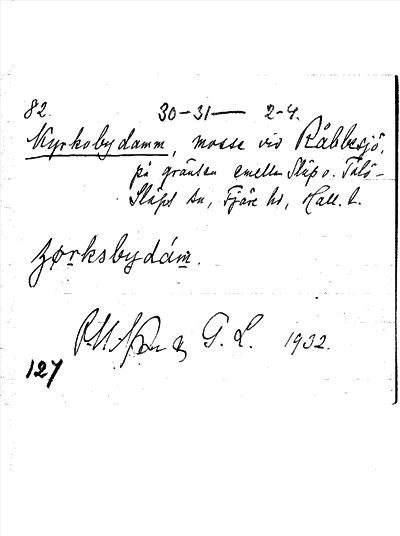 82. 30-31— 2-4.
Kyrkobydamm, mosse vid Råbbesjö,
på gränsen emellan Släp o. Tölö-
Släps sn, Fjäre hd, Hall. l.
ʒørksbydám.
G. L. 1932.
127